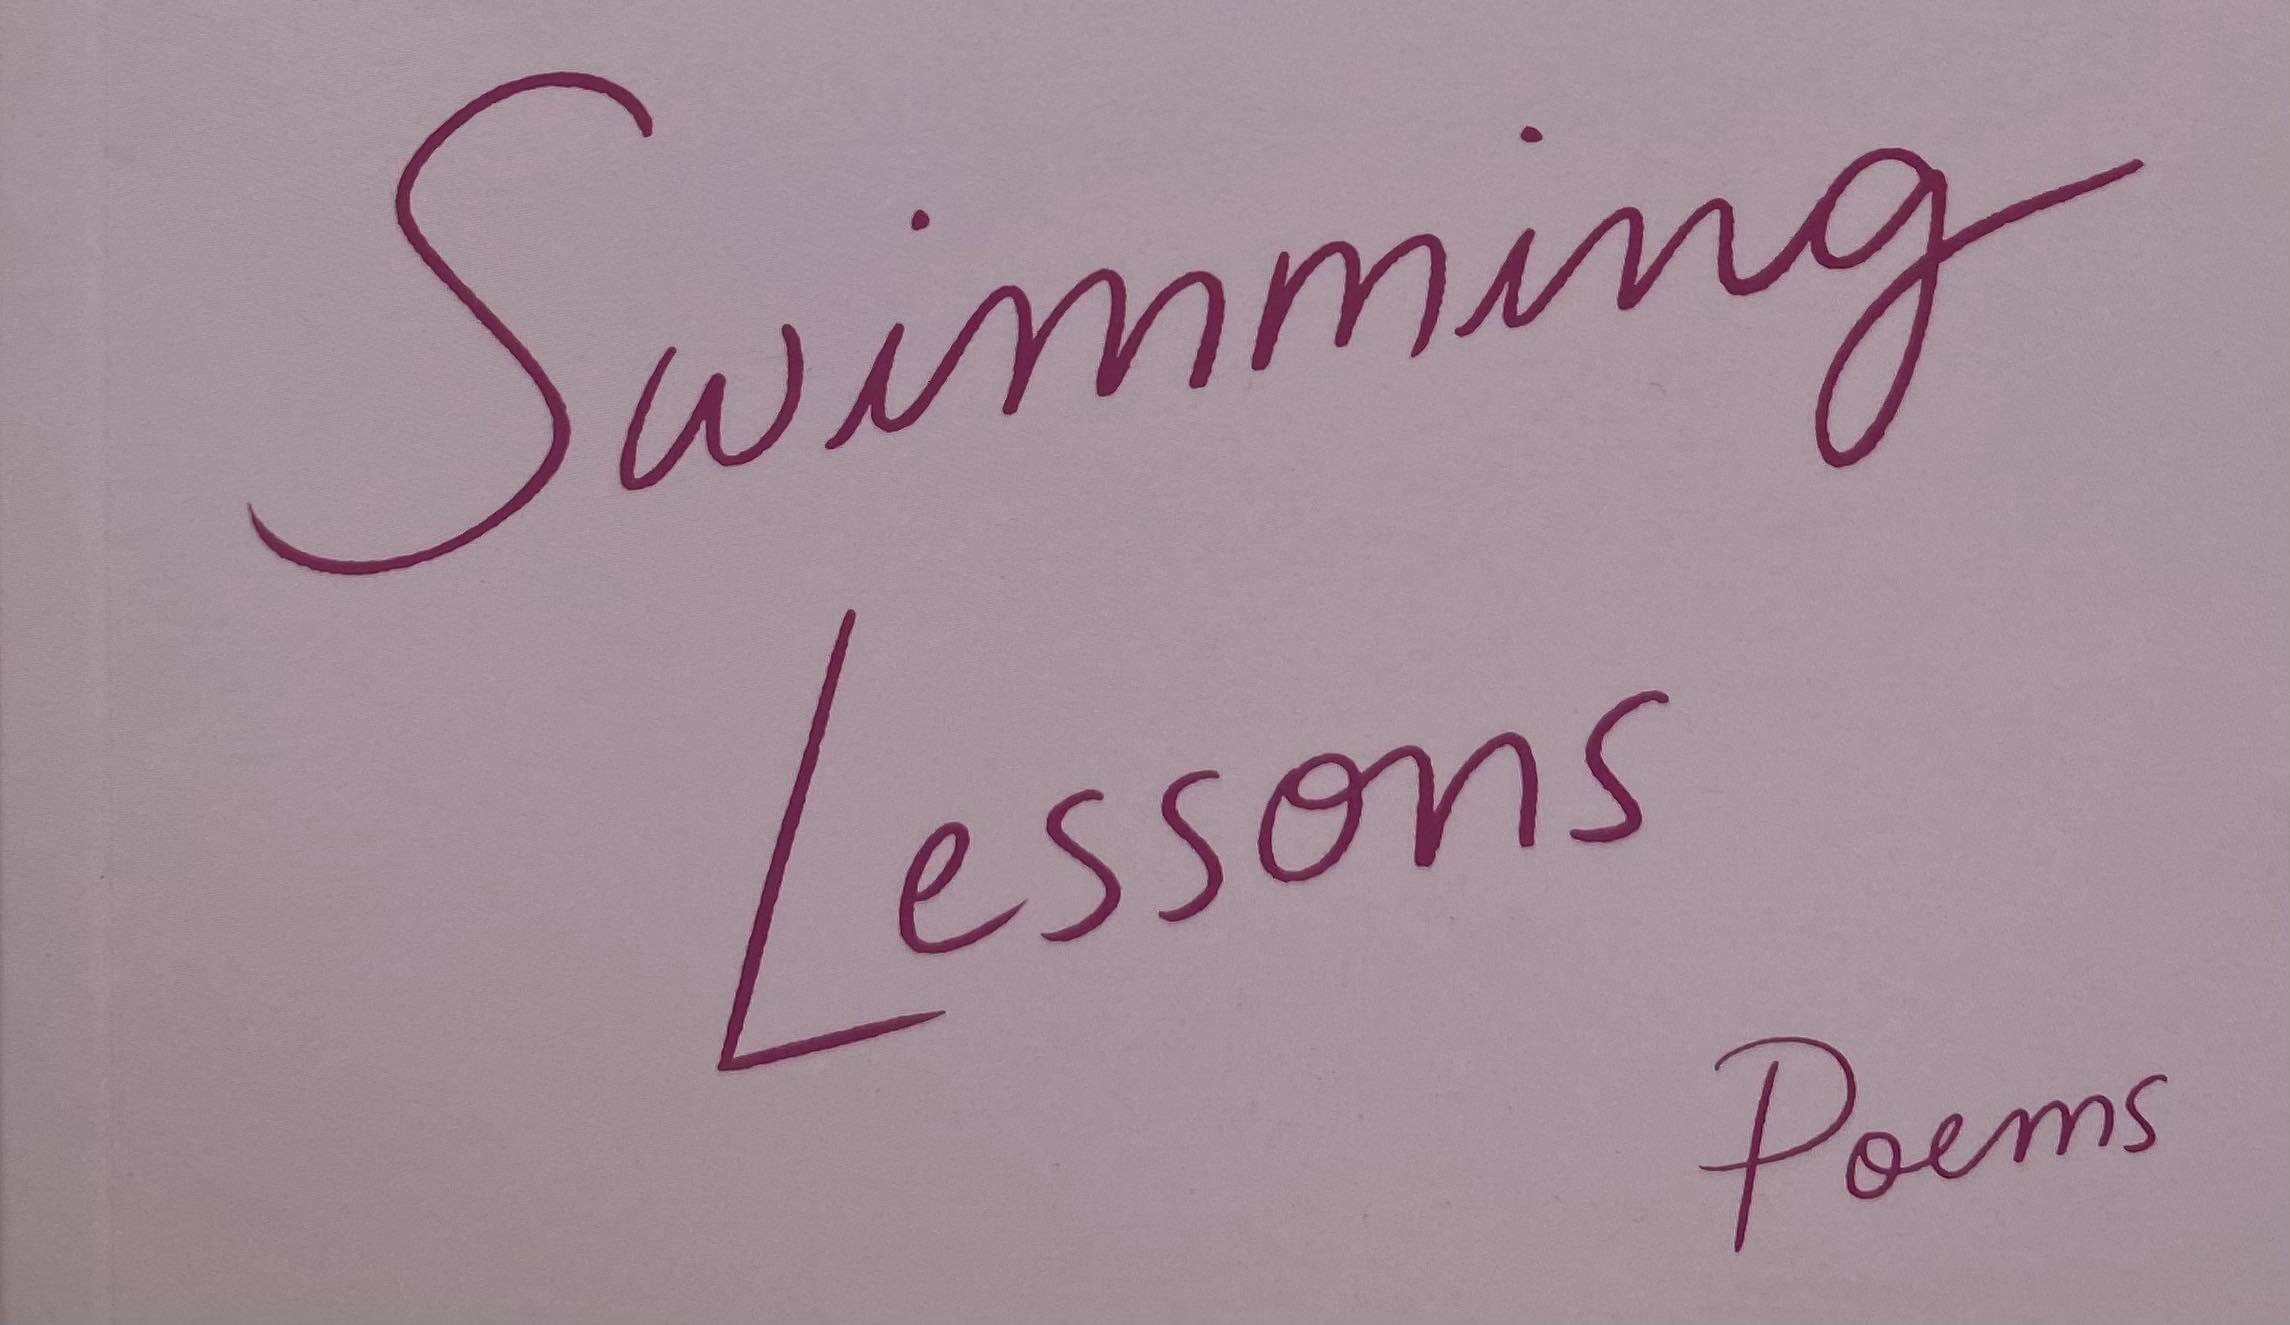 Swimming
Lessons
Poems